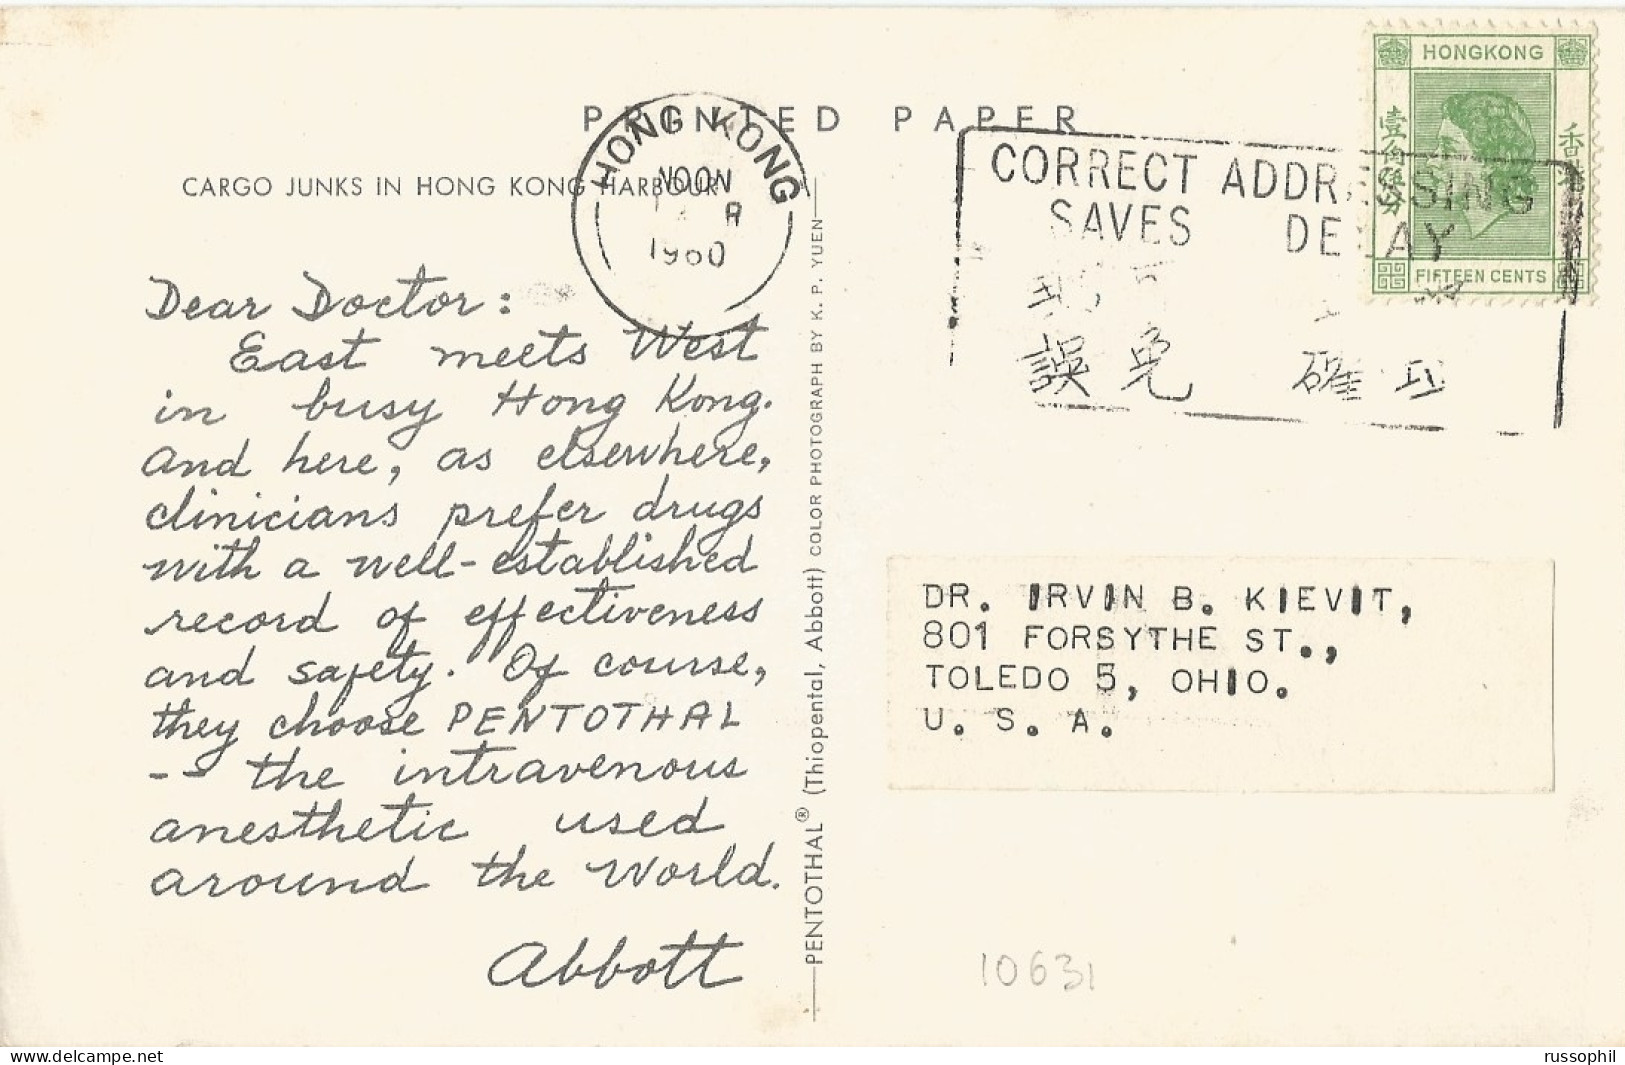 PRINTED PAPER
CARGO JUNKS IN HONG KONG HARBOUR
HONG KONG
NOON
A
1960
CORRECT ADDRESSING
SAVES DELAY
誤免 確
HONGKONG
壹角伍分
香港
FIFTEEN CENTS
Dear Doctor:
East meets West
in busy Hong Kong.
And here, as elsewhere,
clinicians prefer drugs
with a well-established
record of effectiveness
and safety. Of course,
they choose PENTOTHAL
-- the intravenous
anesthetic used
around the World.
Abbott
PENTOTHAL® (Thiopental, Abbott) COLOR PHOTOGRAPH BY K. P. YUEN
DR. IRVIN B. KIEVIT,
801 FORSYTHE ST.,
TOLEDO 5, OHIO.
U. S. A.
10631
delcampe.net
russophil